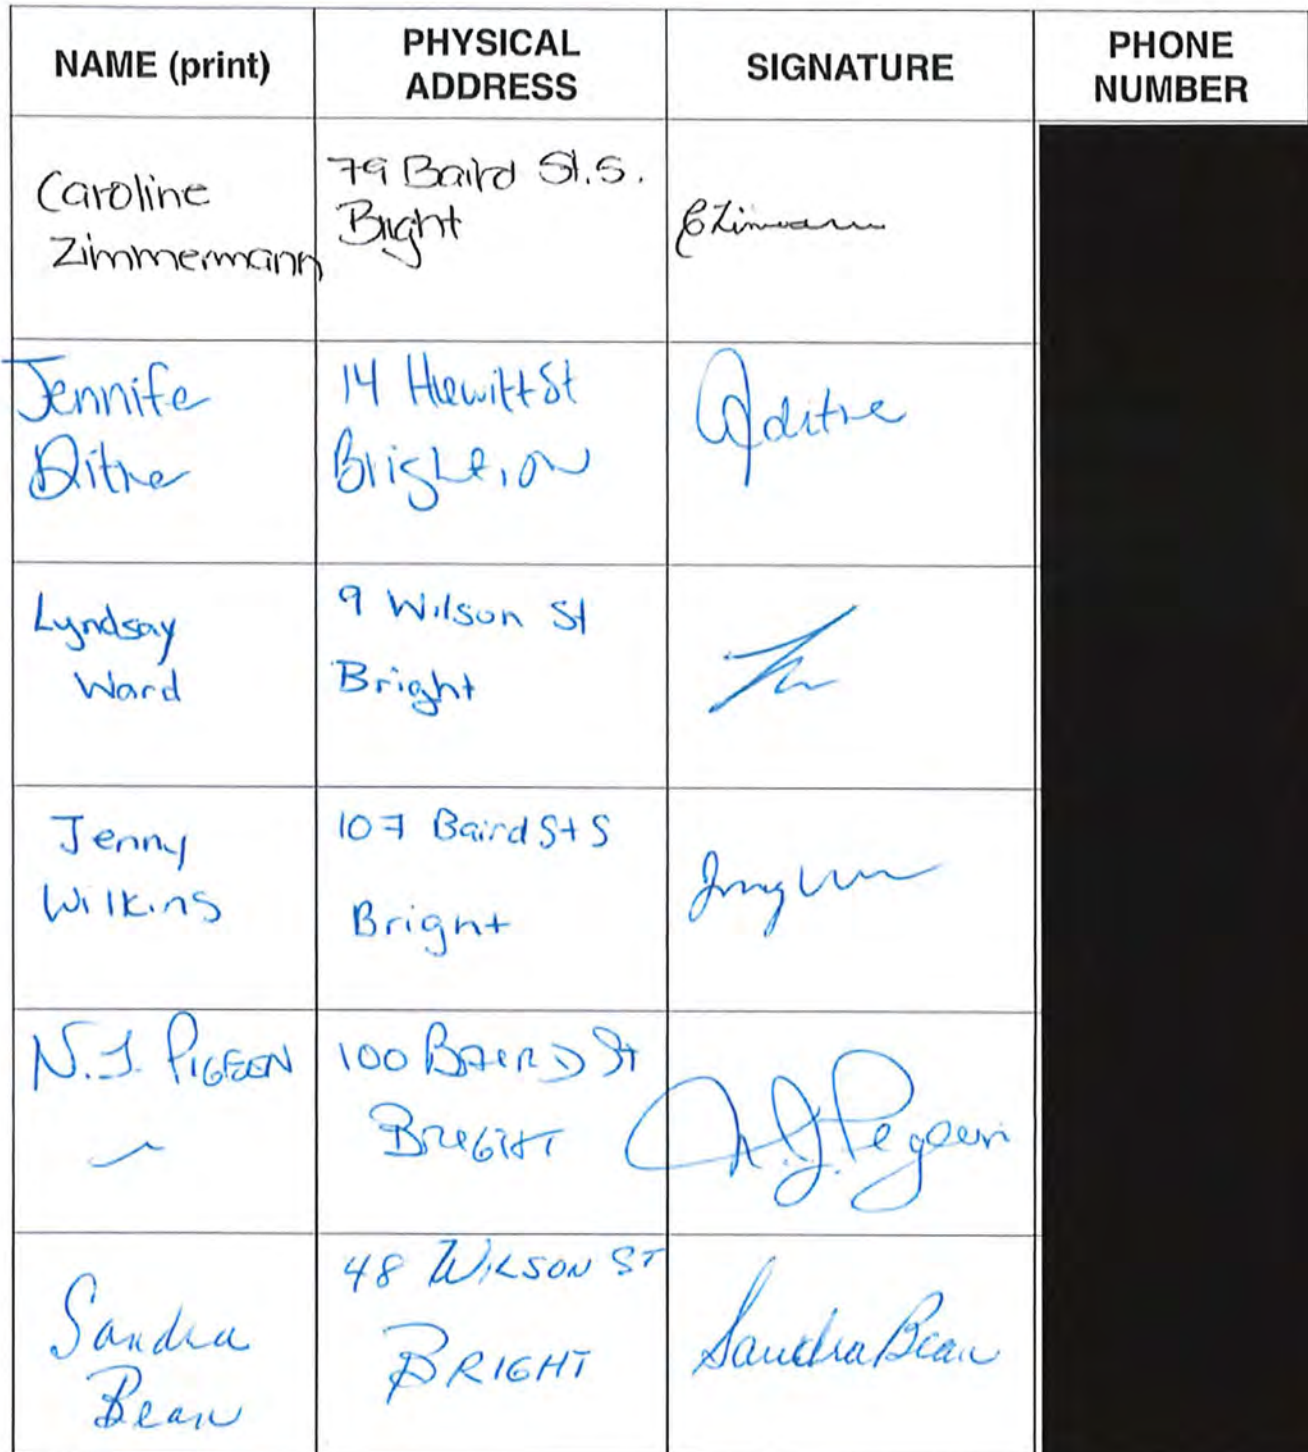 NAME (print)
PHYSICAL
ADDRESS
SIGNATURE
PHONE
NUMBER
Caroline
Zimmermann
79 Baird St. S.
Bright
CZimmerman
Jennife
Ditre
14 Hewitt St
Bright, ON
Jditre
Lyndsay
Ward
9 Wilson St
Bright
Jenny
Wilkins
107 Baird St S
Bright
N.J. PIGEON
100 BAIRD St
BRIGHT
N.J. Pigeon
Sandra
Bean
48 WILSON ST
BRIGHT
Sandra Bean